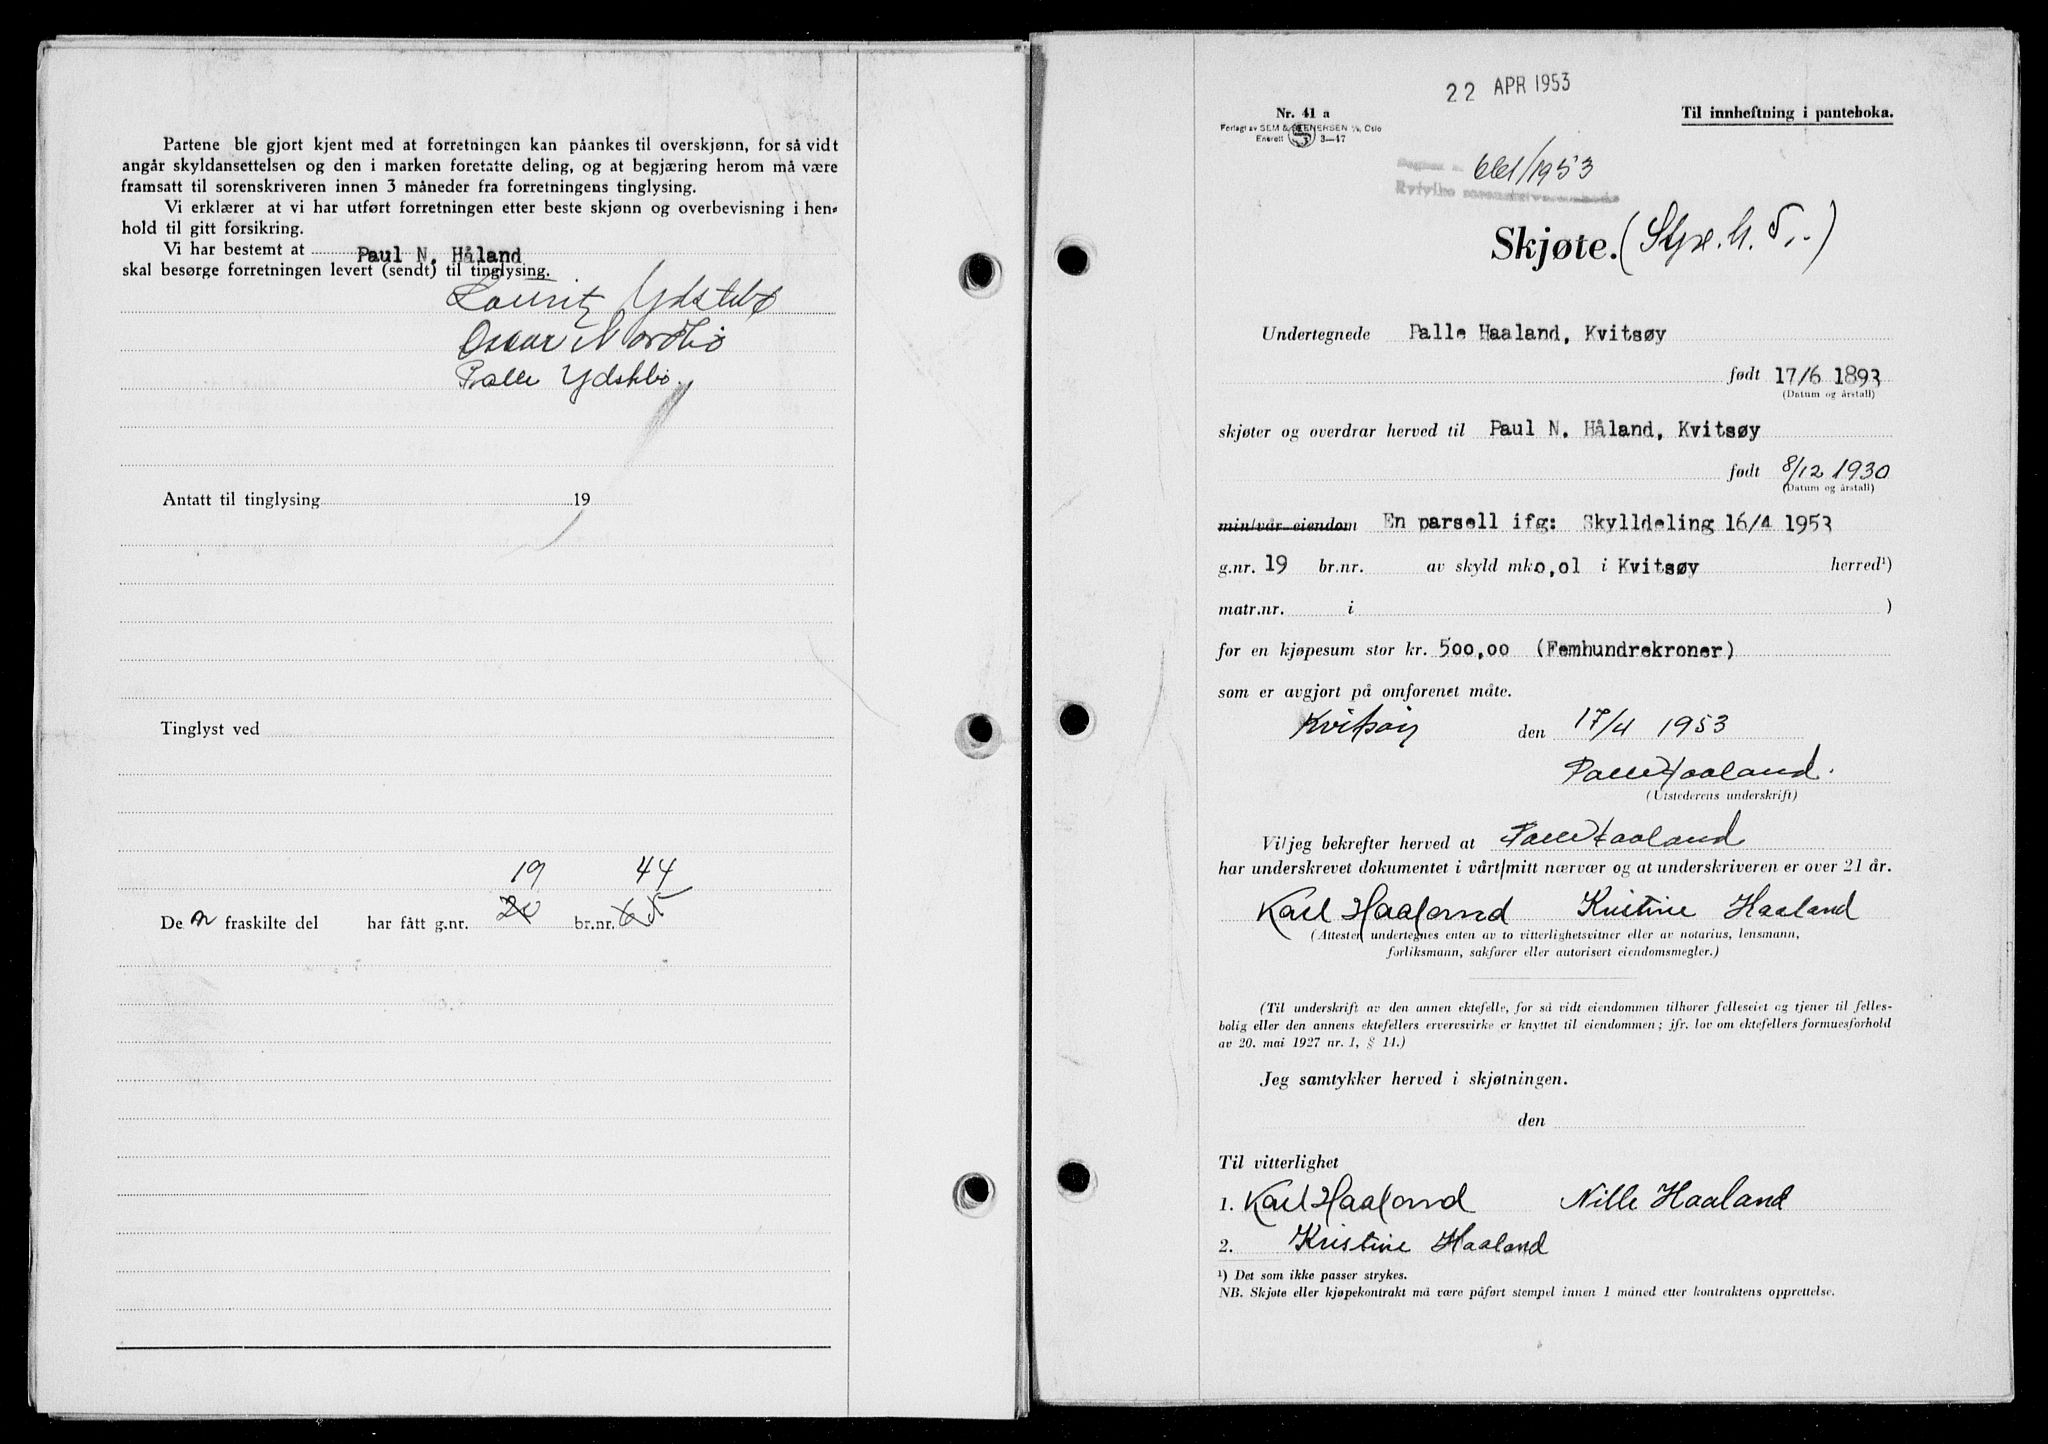 Partene ble gjort kjent med at forretningen kan påankes til overskjønn, for så vidt
angår skyldansettelsen og den i marken foretatte deling, og at begjæring herom må være
framsatt til sorenskriveren innen 3 måneder fra forretningens tinglysing.
Vi erklærer at vi har utført forretningen etter beste skjønn og overbevisning i hen-
hold til gitt forsikring.
Vi har bestemt at Paul N. Håland
skal besørge forretningen levert (sendt) til tinglysing.
Lauritz Ydstebø
Oscar Nordbø
Palle Ydstebø.
Antatt til tinglysing 19
Tinglyst ved
19 44
De n fraskilte del har fått g.nr. 20 br.nr. 65
22 APR 1953
Nr. 41 a Til innheftning i panteboka.
Forlagt av SEM & STENERSEN A/S, Oslo
Enerett 3—47
661/1953
Skjøte.
Undertegnede Palle Haaland, Kvitsøy
født 17/6 1893
(Datum og årstall)
skjøter og overdrar herved til Paul N. Håland, Kvitsøy
født 8/12 1930
(Datum og årstall)
min/vår eiendom En parsell ifg: Skylldeling 16/4 1953
g.nr. 19 br.nr. av skyld mk0,01 i Kvitsøy herred¹)
matr.nr. i )
for en kjøpesum stor kr. 500,00 (Femhundrekroner)
som er avgjort på omforenet måte.
Kvitsøy den 17/4 1953
Palle Haaland.
(Utstederens underskrift)
Vi/jeg bekrefter herved at Palle Haaland
har underskrevet dokumentet i vårt/mitt nærvær og at underskriveren er over 21 år.
Karl Haaland Kristine Haaland
(Attesten undertegnes enten av to vitterlighetsvitner eller av notarius, lensmann,
forliksmann, sakfører eller autorisert eiendomsmegler.)
(Til underskrift av den annen ektefelle, for så vidt eiendommen tilhører felleseiet og tjener til felles-
bolig eller den annens ektefellers ervervsvirke er knyttet til eiendommen; jfr. lov om ektefellers formuesforhold
av 20. mai 1927 nr. 1, § 14.)
Jeg samtykker herved i skjøtningen.
den
Til vitterlighet
1. Karl Haaland Nille Haaland
2. Kristine Haaland
¹) Det som ikke passer strykes.
NB. Skjøte eller kjøpekontrakt må være påført stempel innen 1 måned etter kontraktens opprettelse.